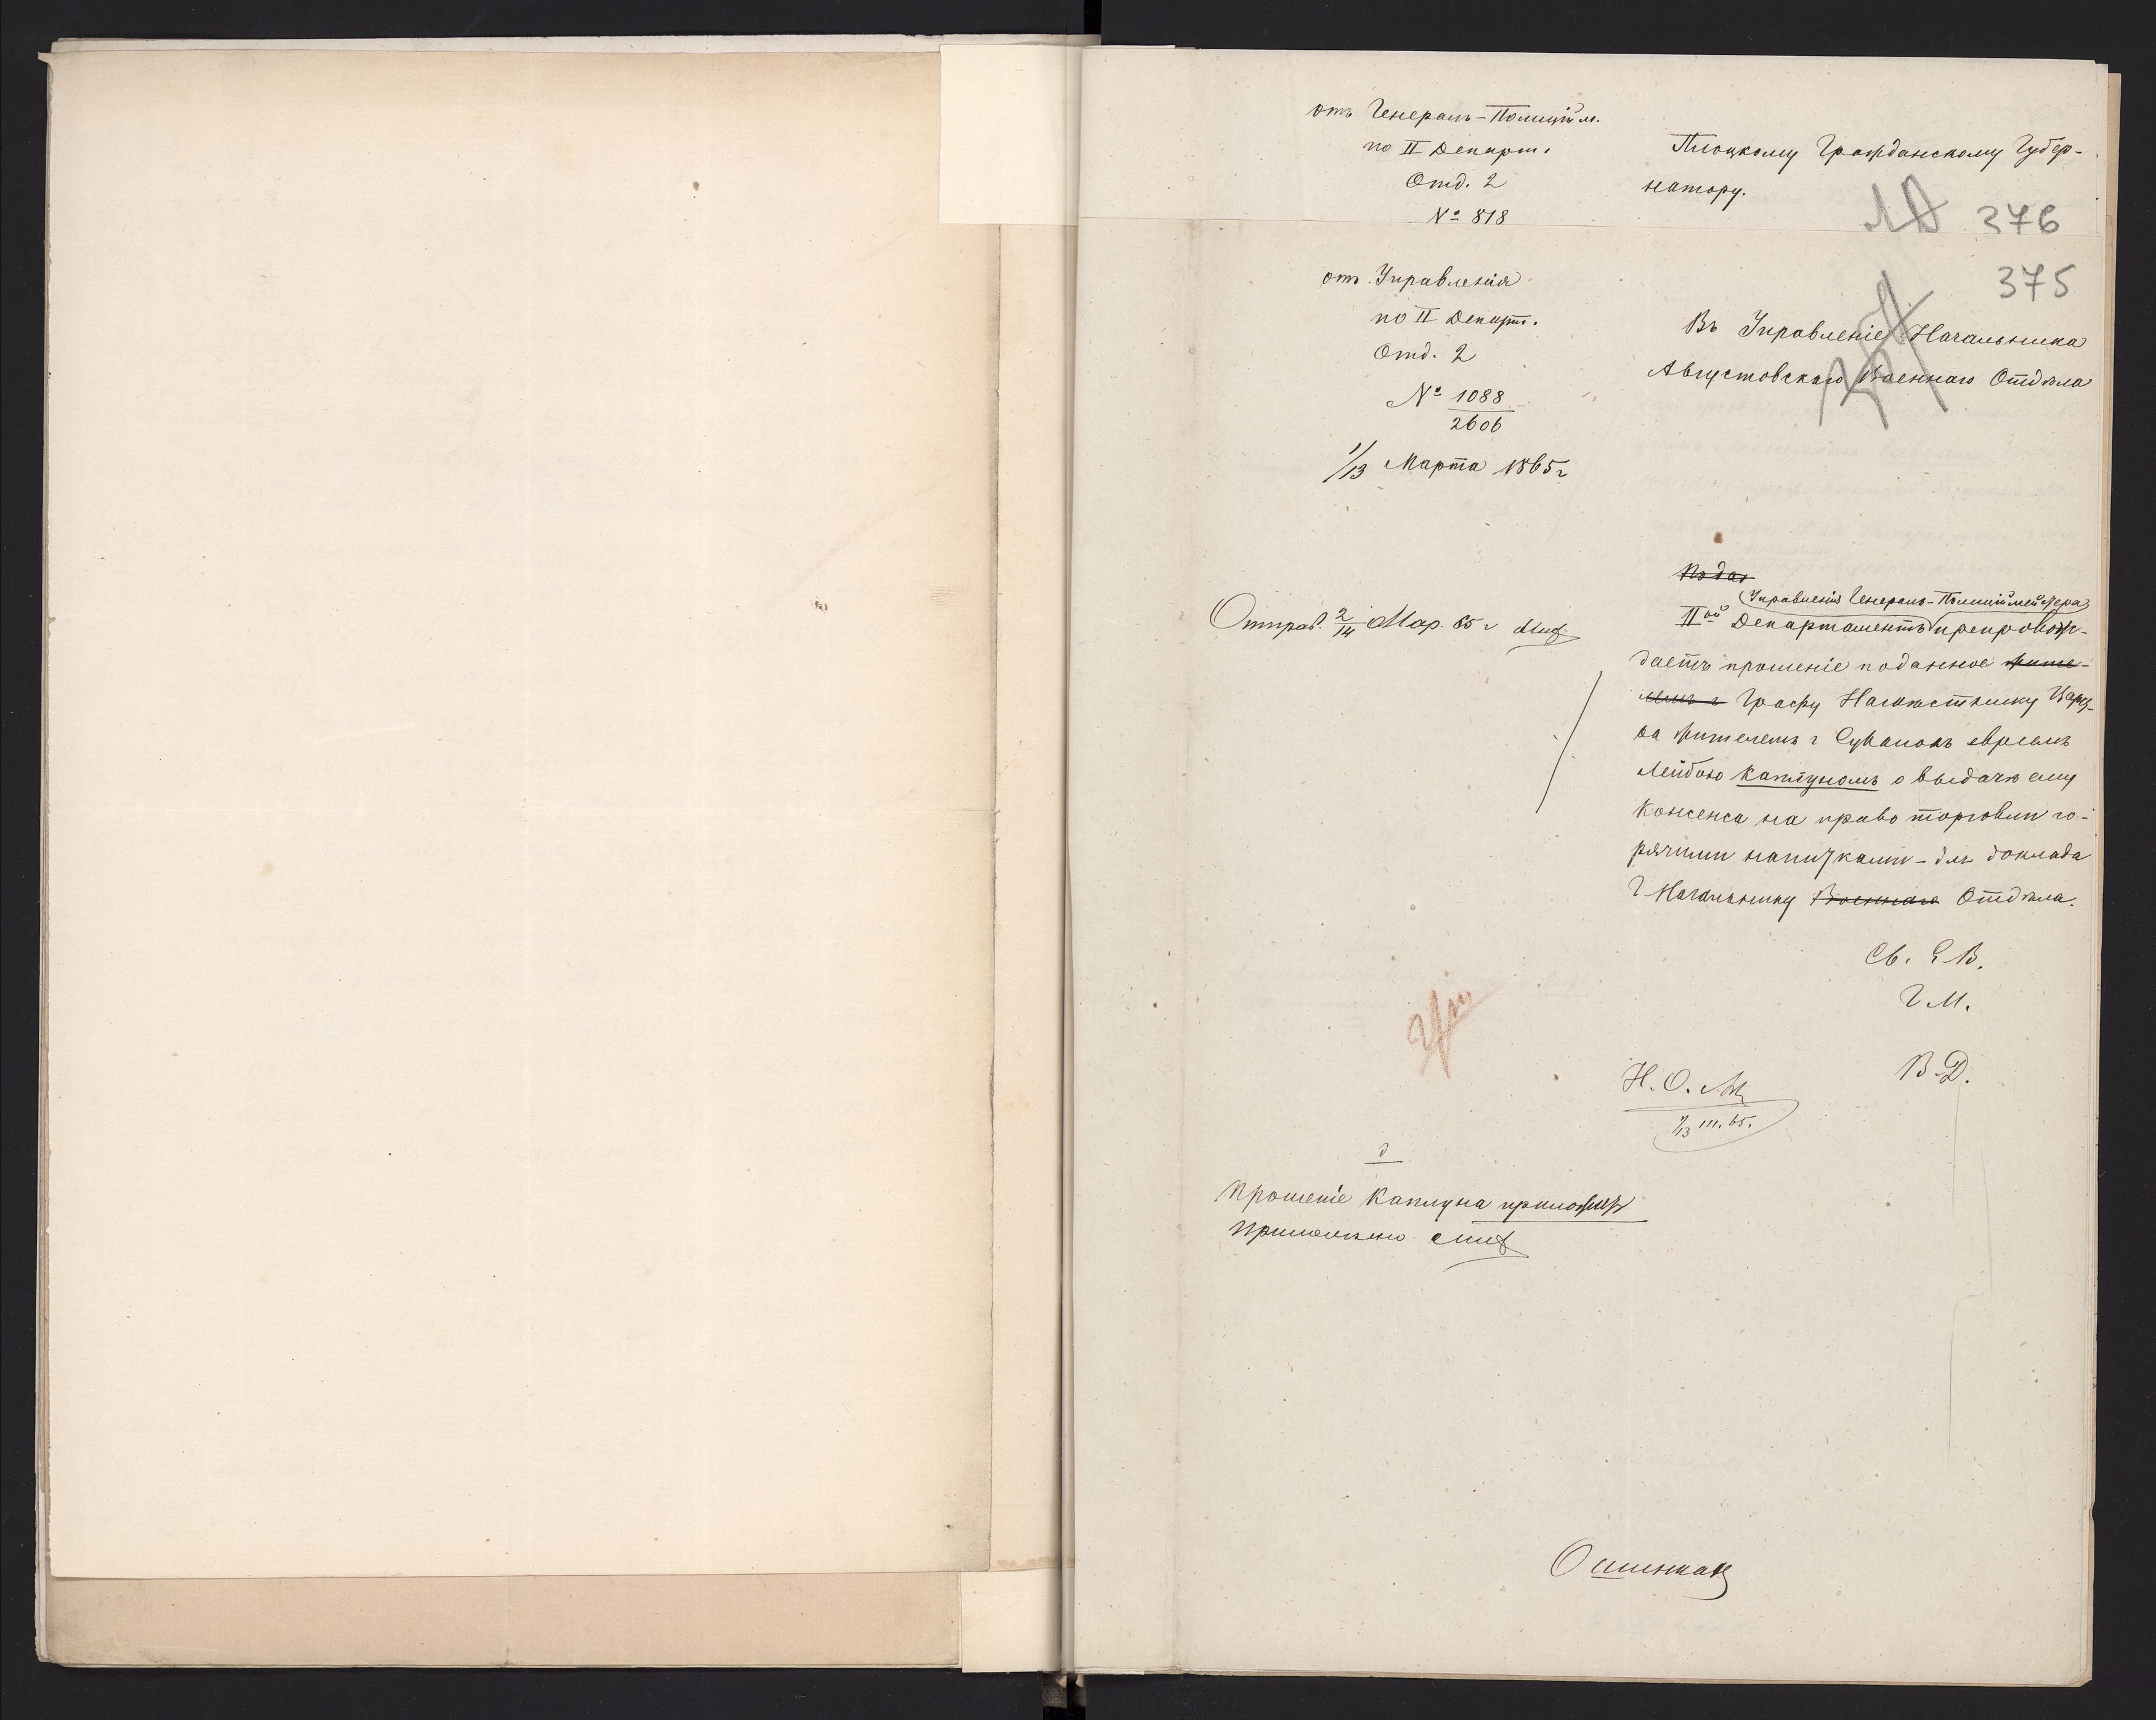 отъ Генералъ-Полиційм.
по II Департ.
Отд. 2
№ 818
Плоцкому Гражданскому Губер-
натору.
376
375
отъ Управленія
по II Департ.
Отд. 2
№ 1088
2606
1/13 Марта 1865 г
Въ Управленіе Начальника
Августовскаго Военнаго Отдѣла
Отправ. 2/14 Мар. 65 г
Управленія Генералъ-Полиціймейстера
IIой Департаментъ препровож-
даетъ прошеніе поданное жите-
лемъ г Графу Намѣстнику Каплу-
на жителемъ г Сувалокъ евреемъ
Лейбою Каплуномъ о выдачѣ ему
консенса на право торговли го-
рячими напитками - для доклада
Г Начальнику Военнаго Отдѣла.
Св. Е В.
Г М.
В Д.
Н. О.
1/13 III. 65.
Прошеніе Каплуна приложить
Приложено